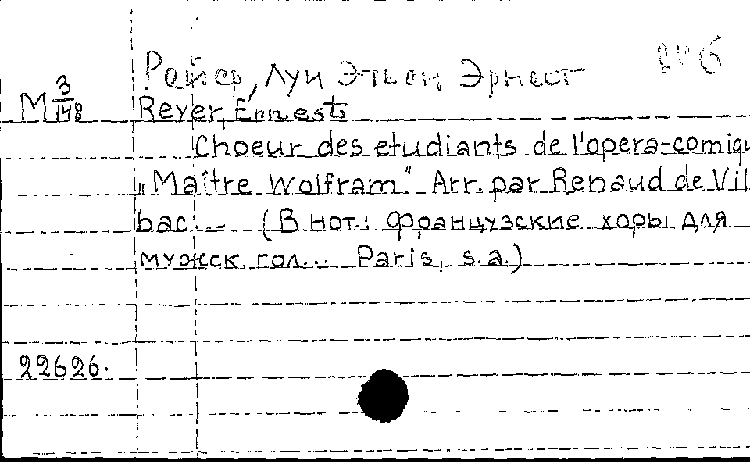 Рейер, Луи Этьен Эрнест
М 3/148
Reyer, Ernest
Choeur des etudiants de l'opera-comiqu
„Maître Wolfram." Arr. par Renaud de Vil
bac. - (В нот.: Французские хоры для
мужск. гол... Paris, s.a.)
22626.